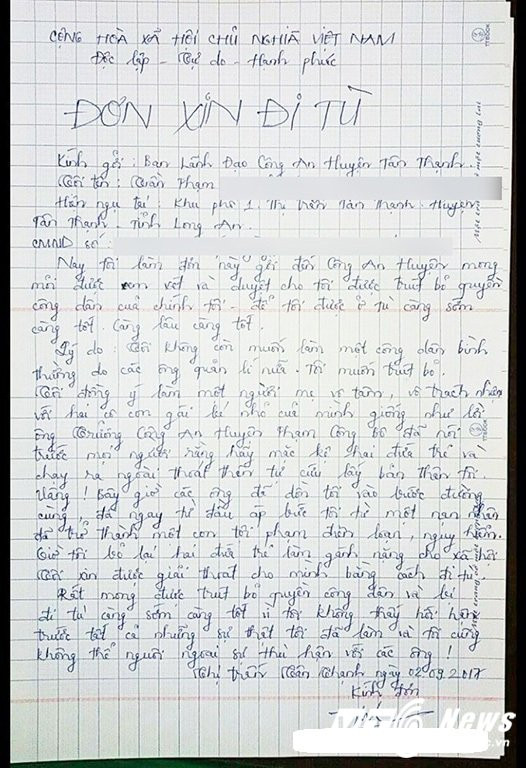 CỘNG HOÀ XÃ HỘI CHỦ NGHĨA VIỆT NAM
Độc lập - Tự do - Hạnh phúc
ĐƠN XIN ĐI TÙ
Kính gởi : Ban Lãnh Đạo Công An Huyện Tân Thạnh.
Tôi tên : Trần Phạm
Hiện ngụ tại : Khu phố 1. Thị trấn Tân Thạnh. Huyện
Tân Thạnh. Tỉnh Long An.
CMND số :
Nay tôi làm đơn này gởi đến Công An Huyện mong
mỏi được xem xét và duyệt cho tôi được truất bỏ quyền
công dân của chính tôi - để tôi được ở tù càng sớm
càng tốt. Càng lâu càng tốt.
Lý do : Tôi không còn muốn làm một công dân bình
thường do các ông quản lí nữa. Tôi muốn truất bỏ.
Tôi đồng ý làm một người mẹ vô tâm, vô trách nhiệm
với hai cô con gái bé nhỏ của mình giống như lời
ông Trưởng Công An Huyện Phạm Công Bô đã nói
trước mọi người rằng hãy mặc kệ hai đứa trẻ và
chạy ra ngoài thoát thân tự cứu lấy bản thân tôi.
Vâng ! Bây giờ các ông đã dồn tôi vào bước đường
cùng, đã ngay từ đầu áp bức tôi từ một nạn nhân
đã trở thành một con tội phạm điên loạn, nguy hiểm.
Giờ tôi bỏ lại hai đứa trẻ làm gánh nặng cho xã hội
Tôi xin được giải thoát cho mình bằng cách đi tù.
Rất mong được truất bỏ quyền công dân và
đi tù càng sớm càng tốt vì tôi không thấy hối hận
trước tất cả những sự thật tôi đã làm và tôi cũng
không thể nguôi ngoai sự thù hận với các ông !
Thị trấn Tân Thạnh ngày 02.09.2017
Kính đơn
News
TTBOOK